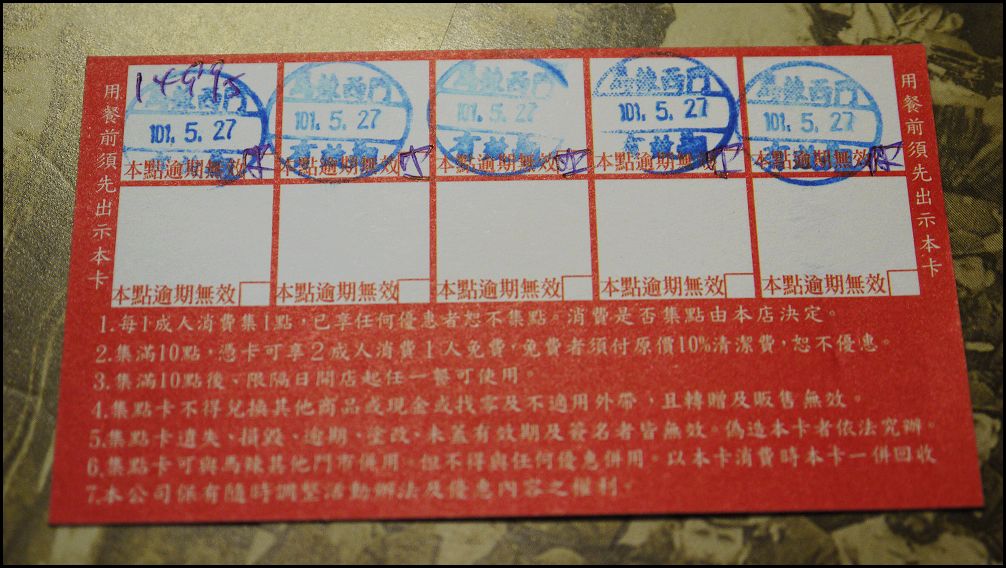 用餐前須先出示本卡
14995
馬辣西門 馬辣西門 馬辣西門 馬辣西門 馬辣西門
101. 5. 27 101. 5. 27 101. 5. 27 101. 5. 27 101. 5. 27
有效期 有效期 有效期 有效期 有效期
本點逾期無效 本點逾期無效 本點逾期無效 本點逾期無效 本點逾期無效
本點逾期無效 本點逾期無效 本點逾期無效 本點逾期無效 本點逾期無效
用餐前須先出示本卡
1.每1成人消費集1點，已享任何優惠者恕不集點。消費是否集點由本店決定。
2.集滿10點，憑卡可享2成人消費1人免費，免費者須付原價10%清潔費，恕不優惠。
3.集滿10點後、限隔日開店起任一餐可使用。
4.集點卡不得兌換其他商品或現金或找零及不適用外帶，且轉贈及販售無效。
5.集點卡遺失、損毀、逾期、塗改、未蓋有效期及簽名者皆無效。偽造本卡者依法究辦。
6.集點卡可與馬辣其他門市併用。但不得與任何優惠併用。以本卡消費時本卡一併回收
7.本公司保有隨時調整活動辦法及優惠內容之權利。